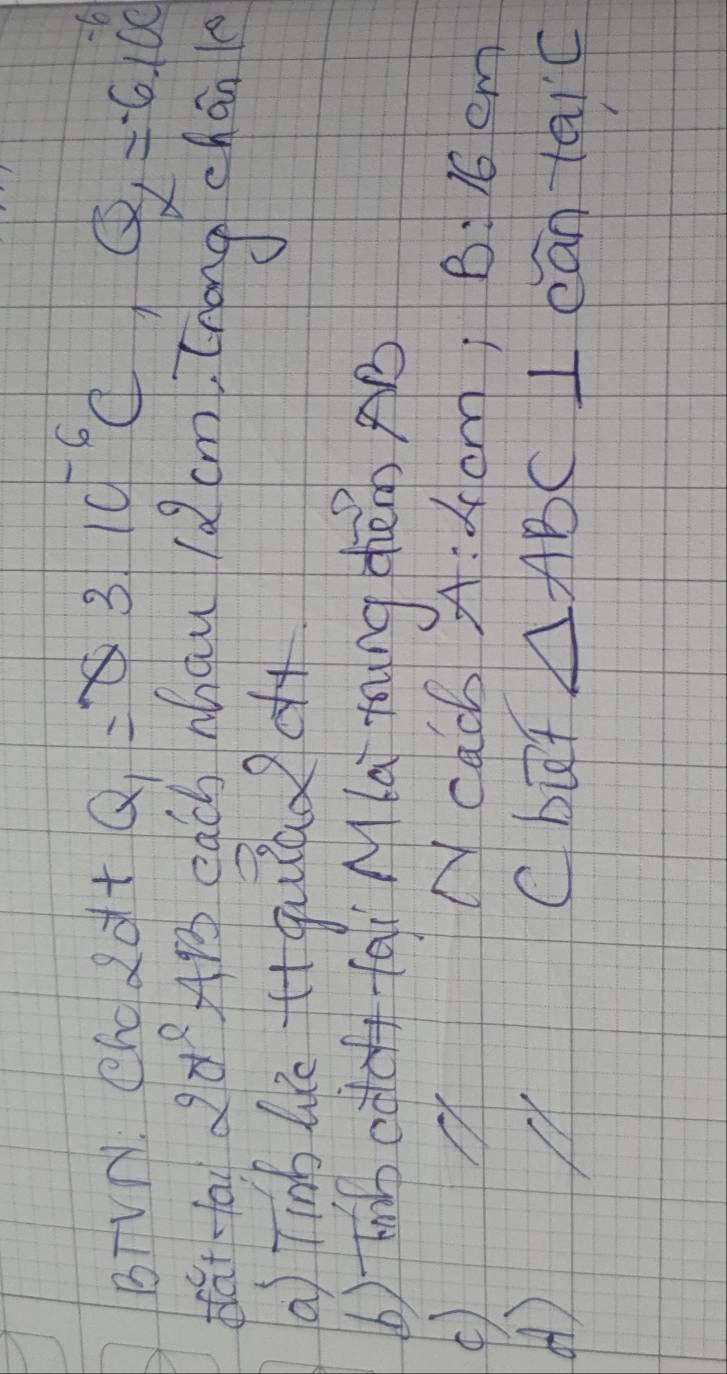 BTVN: Cho 2đt Q₁ = 3.10⁻⁶ C, Q₂ = -6.10⁻⁶
đặt tại 2đ² AB cách nhau 12 cm. Trong chân k
a) Tính lực tt giữa 2 đt.
b) Tính cđđt tại M là trung điểm AB
c) // N cách A: 4cm; B: 16 cm
d) // C biết △ABC ⊥ cân tại C